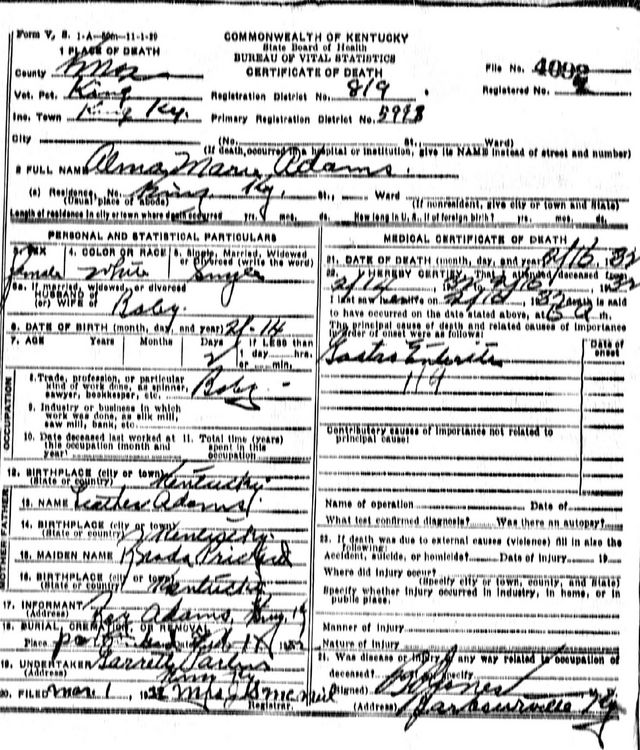 Form V. S. 1-A-50m-11-1-29
COMMONWEALTH OF KENTUCKY
State Board of Health
BUREAU OF VITAL STATISTICS
CERTIFICATE OF DEATH
1 PLACE OF DEATH
County Knox
File No. 4092
Vot. Pct. King
Registration District No. 819
Registered No.
Inc. Town King Ky.
Primary Registration District No. 5998
City (No. St., Ward)
(If death occurred in a hospital or institution, give its NAME instead of street and number)
2 FULL NAME Alma Marie Adams.
(a) Residence. No. King Ky. St., Ward
(Usual place of abode) (If nonresident, give city or town and State)
Length of residence in city or town where death occurred yrs. mos. ds. How long in U. S., if of foreign birth? yrs. mos. ds.
PERSONAL AND STATISTICAL PARTICULARS
3. SEX 4. COLOR OR RACE 5. Single, Married, Widowed or Divorced (write the word)
female white Single
5a. If married, widowed, or divorced
HUSBAND of
(or) WIFE of Baby.
6. DATE OF BIRTH (month, day, and year) 2-14
7. AGE Years Months Days If LESS than
2 1 day hrs.
or min.
OCCUPATION
8. Trade, profession, or particular
kind of work done, as spinner,
sawyer, bookkeeper, etc. Baby -
9. Industry or business in which
work was done, as silk mill,
saw mill, bank, etc.
10. Date deceased last worked at 11. Total time (years)
this occupation (month and spent in this
year) occupation
12. BIRTHPLACE (city or town)
(State or country) Kentucky
FATHER
13. NAME Leather Adams
14. BIRTHPLACE (city or town)
(State or country) Kentucky.
MOTHER
15. MAIDEN NAME
16. BIRTHPLACE (city or town)
(State or country) Kentucky
17. INFORMANT Adams, King Ky
(Address)
18. BURIAL, CREMATION, OR REMOVAL
Place Date Feb 1932
19. UNDERTAKER Garrett
(Address) King Ky
20. FILED Mar. 1, 1932 Mrs
Registrar.
MEDICAL CERTIFICATE OF DEATH
21. DATE OF DEATH (month, day, and year) 2/16.32
22. I HEREBY CERTIFY, That I attended deceased from
2/14, 32, 2/16, 1932
I last saw h alive on 32 death is said
to have occurred on the date stated above, at m.
The principal cause of death and related causes of importance
in order of onset were as follows:
Date of onset
Gastro Enteritis
119
Contributory causes of importance not related to
principal cause:
Name of operation Date of
What test confirmed diagnosis? Was there an autopsy?
23. If death was due to external causes (violence) fill in also the
following:
Accident, suicide, or homicide? Date of injury 19
Where did injury occur?
(Specify city or town, county, and State)
Specify whether injury occurred in industry, in home, or in
public place.
Manner of injury
Nature of injury
24. Was disease or injury in any way related to occupation of
deceased? If so, specify
(Signed) Jones
(Address) Barbourville Ky